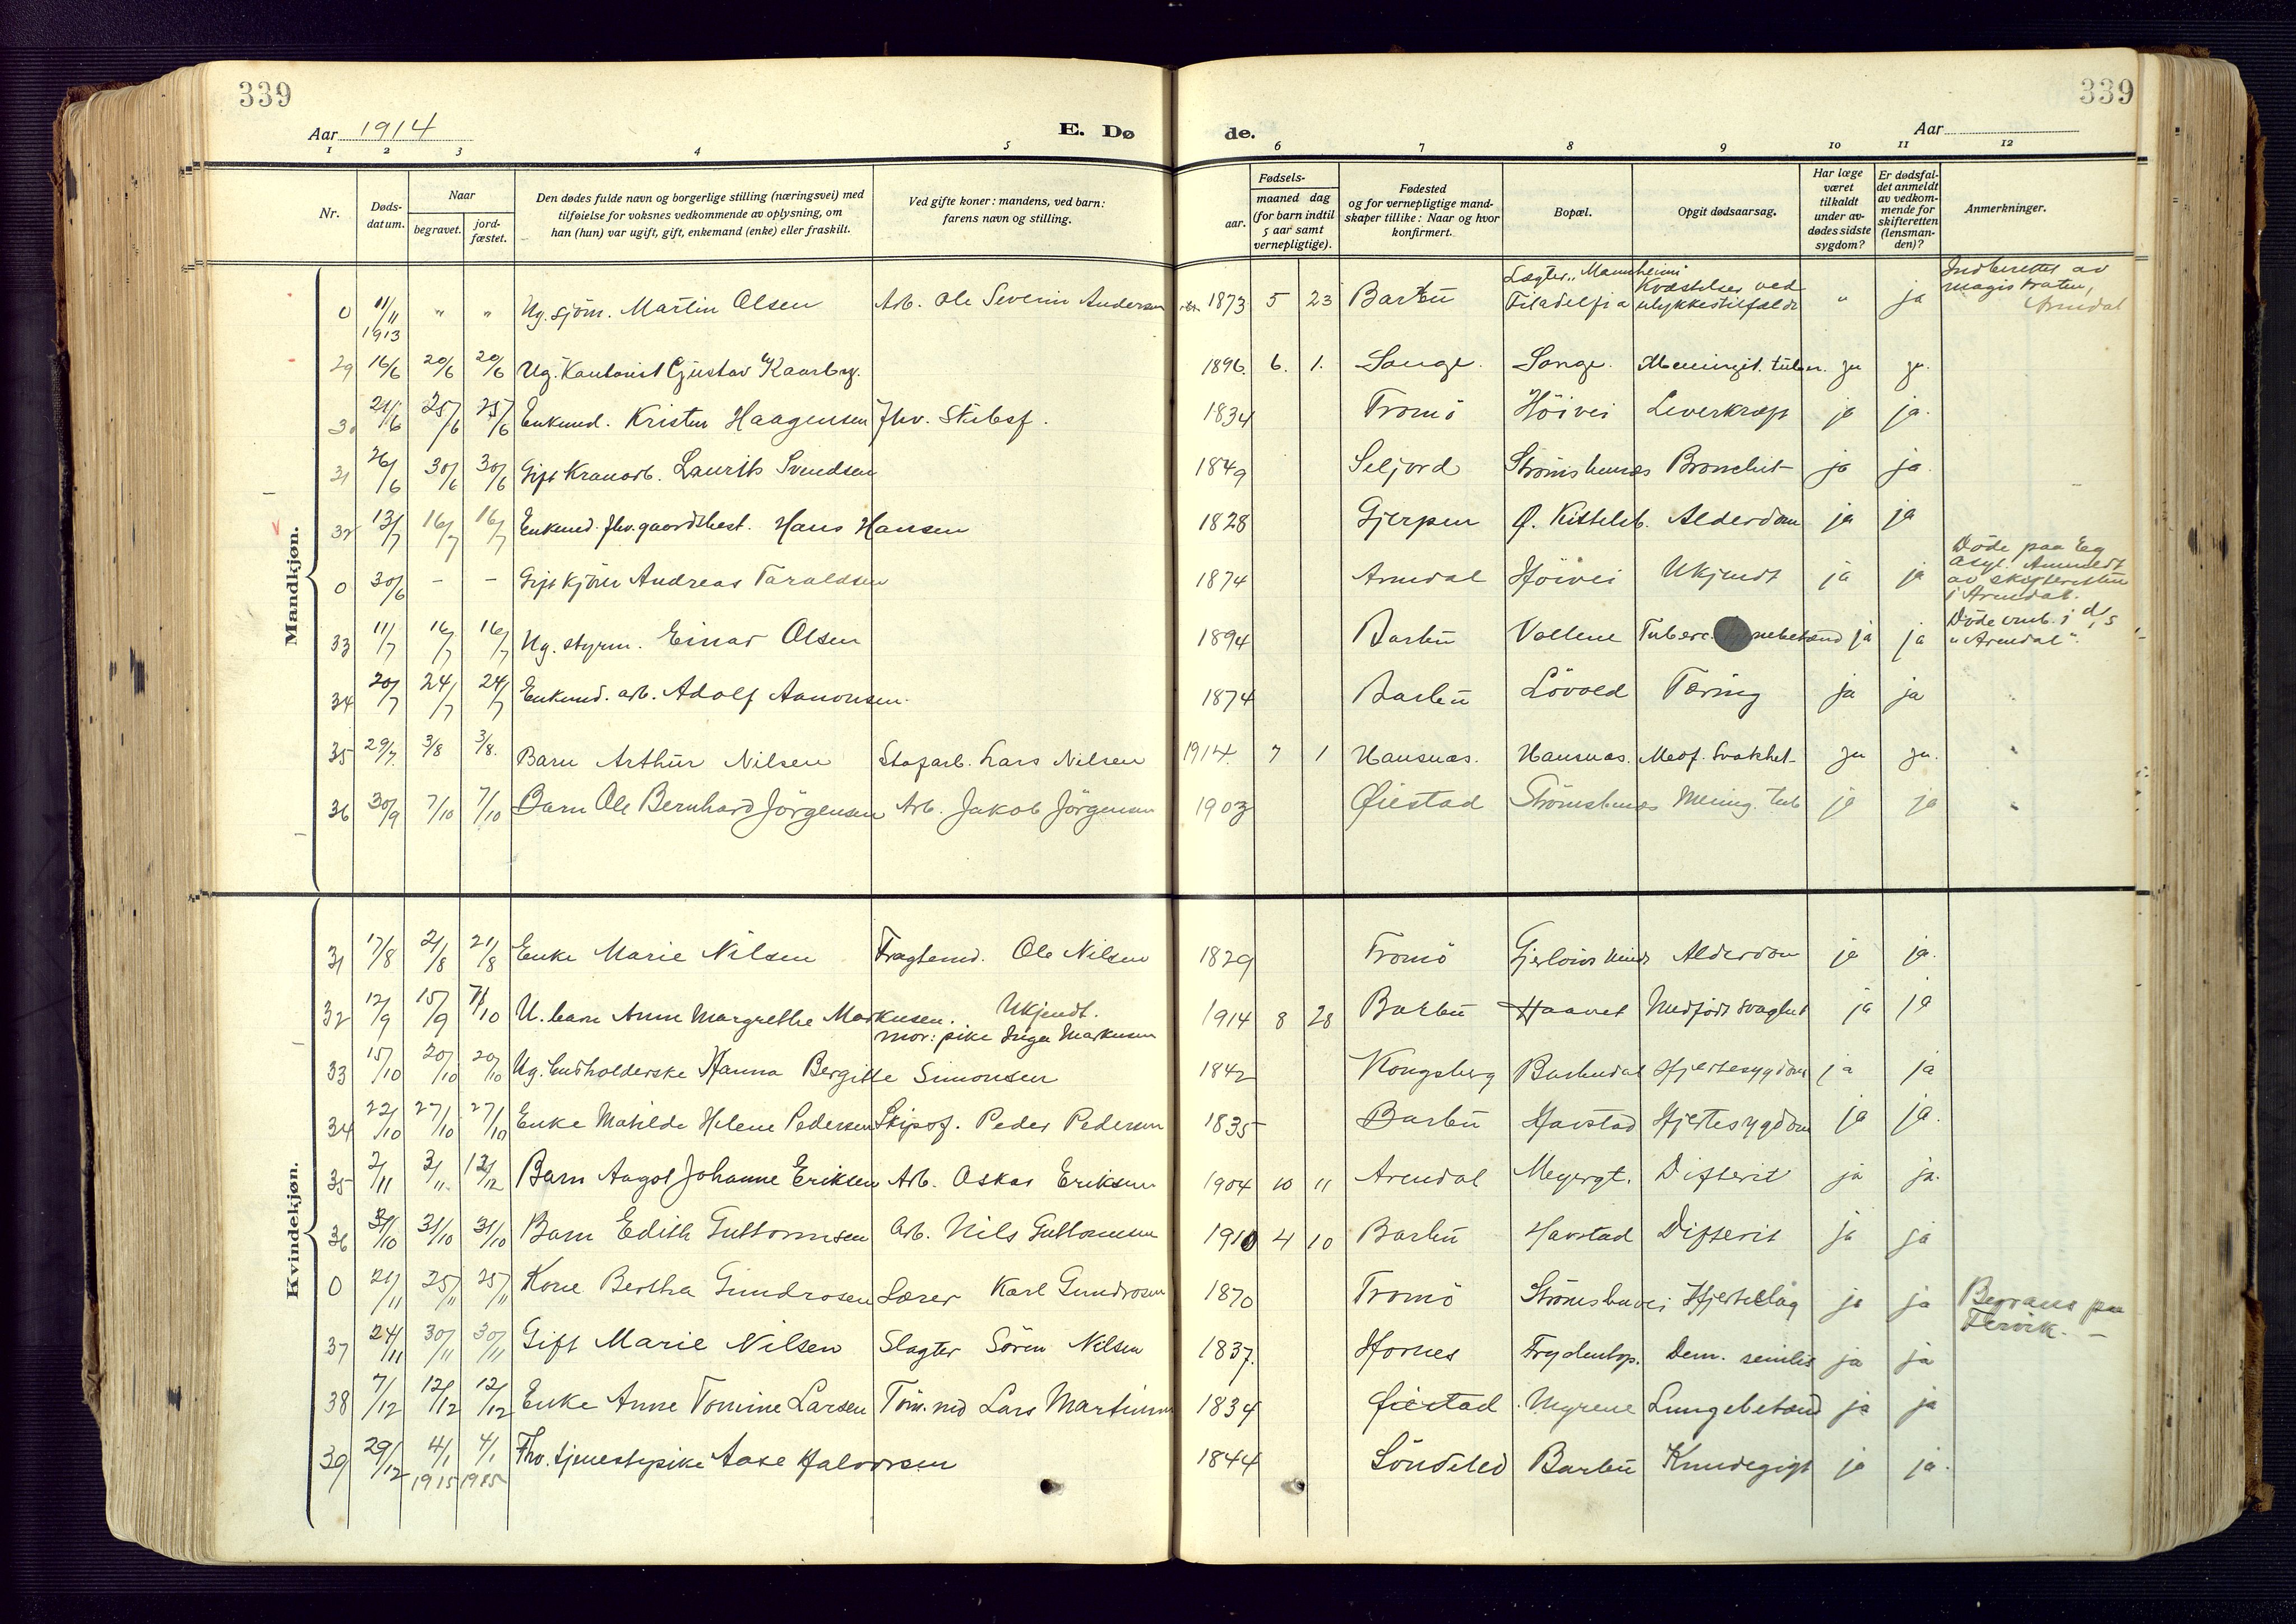 339
339
Aar 1914
E. Dø
de.
Aar
1 2 3 4 5 6 7 8 9 10 11 12
Nr. Døds-datum. Naar begravet. jord-fæstet. Den dødes fulde navn og borgerlige stilling (næringsvei) med tilføielse for voksnes vedkommende av oplysning, om han (hun) var ugift, gift, enkemand (enke) eller fraskilt. Ved gifte koner: mandens, ved barn: farens navn og stilling. Fødsels- aar. maaned dag (for barn indtil 5 aar samt vernepligtige). Fødested og for vernepligtige mand-skaper tillike: Naar og hvor konfirmert. Bopæl. Opgit dødsaarsag. Har læge været tilkaldt under av-dødes sidste sygdom? Er dødsfal-det anmeldt av vedkom-mende for skifteretten (lensman-den)? Anmerkninger.
Mandkjøn.
0 11/11 1913 " " Ug. sjöm. Martin Olsen Arb. Ole Severin Andersen 1873 5 23 Barbu Filadelfia ulykkestilfælde " ja Indberettet av magistraten, Arendal
29 16/6 20/6 20/6 Ug. Kontorist Gustav Kaarby. 1896. 6. 1. Songe. Songe. Meningit. tuber. ja ja.
30 21/6 25/6 25/6 Enkemd. Kristen Haagensen Fhv. Skibsf. 1834 Tromö Höivei Leverkræft ja ja.
31 26/6 30/6 30/6 Gift Kranarb. Laurits Svendsen 1849 Seljord Strömsbunes Bronchit ja ja.
32 13/7 16/7 16/7 Enkemd. fhv. gaardsbest. Hans Hansen 1828 Gjerpen Ø. Kittelsb. Alderdom ja ja
0 30/6 - - Gift kjörer Andreas Taraldsen 1874 Arendal Höivei Ukjendt ja ja Döde paa Eg Asyl. Anmeldt av skifteretten i Arendal.
33 11/7 16/7 16/7 Ug. styrm. Einar Olsen 1894 Barbu Vollene Tuberc. ja ja Döde omb. i d/s "Arendal".
34 20/7 24/7 24/7 Enkemd. arb. Adolf Aanonsen. 1874 Barbu Lövold Tæring ja ja
35 29/7. 3/8 3/8. Barn Arthur Nilsen Stofarb. Lars Nilsen 1914. 7 1 Hansnæs. Hansnæs. Medf. Svakhet ja ja.
36 30/9 7/10 7/10 Barn Ole Bernhard Jörgensen Arb. Jakob Jörgensen 1903 Øiestad Strömsbunes Mening. tub ja ja
Kvindekjøn.
31 17/8 21/8 21/8 Enke Marie Nilsen Fragtemd. Ole Nilsen 1829 Tromö Alderdom ja ja.
32 12/9 15/9 7/10 U. barn Anne Margrethe Markusen. Ukjendt.
mor: pike Inga Markusen 1914 8 28 Barbu Haavet Medfödt svaghet ja ja
33 15/10 20/10 20/10 Ug. husholderske Hanna Bergitte Simonsen 1842 Kongsberg Barbudal Hjertesygdom ja ja
34 22/10 27/10 27/10 Enke Matilde Helene Pedersen Skipsf. Peder Pedersen 1835 Barbu Havstad Hjertesygdom ja ja.
35 2/11 3/11. 12/12 Barn Aagot Johanne Eriksen Arb. Oskar Eriksen 1904 10 11 Arendal Meyergt. Difterit ja ja.
36 31/10 31/10 31/10 Barn Edith Guttormsen Arb. Nils Guttormsen 1910 4 10 Barbu Havstad Difterit ja ja
0 21/11 25/11 25/11 Kone Bertha Gundrosen Lærer Karl Gundrosen 1870 Tromö Strömsbuvei Hjerteslag ja ja Begraves paa Flervik. -
37 24/11 30/11 30/11 Gift Marie Nilsen Slagter Sören Nilsen 1837. Hornes Frydentop. Dem. senilis ja ja
38 7/12 12/12 12/12 Enke Anne Tomine Larsen Töm.md Lars Martinsen 1834 Øiestad Myrene Lungebetænd ja ja
39 29/12 4/1 1915 4/1 1915 Fhv. tjenestepike Aase Halvorsen 1844 Söndeled Barbu Knudegigt ja ja.